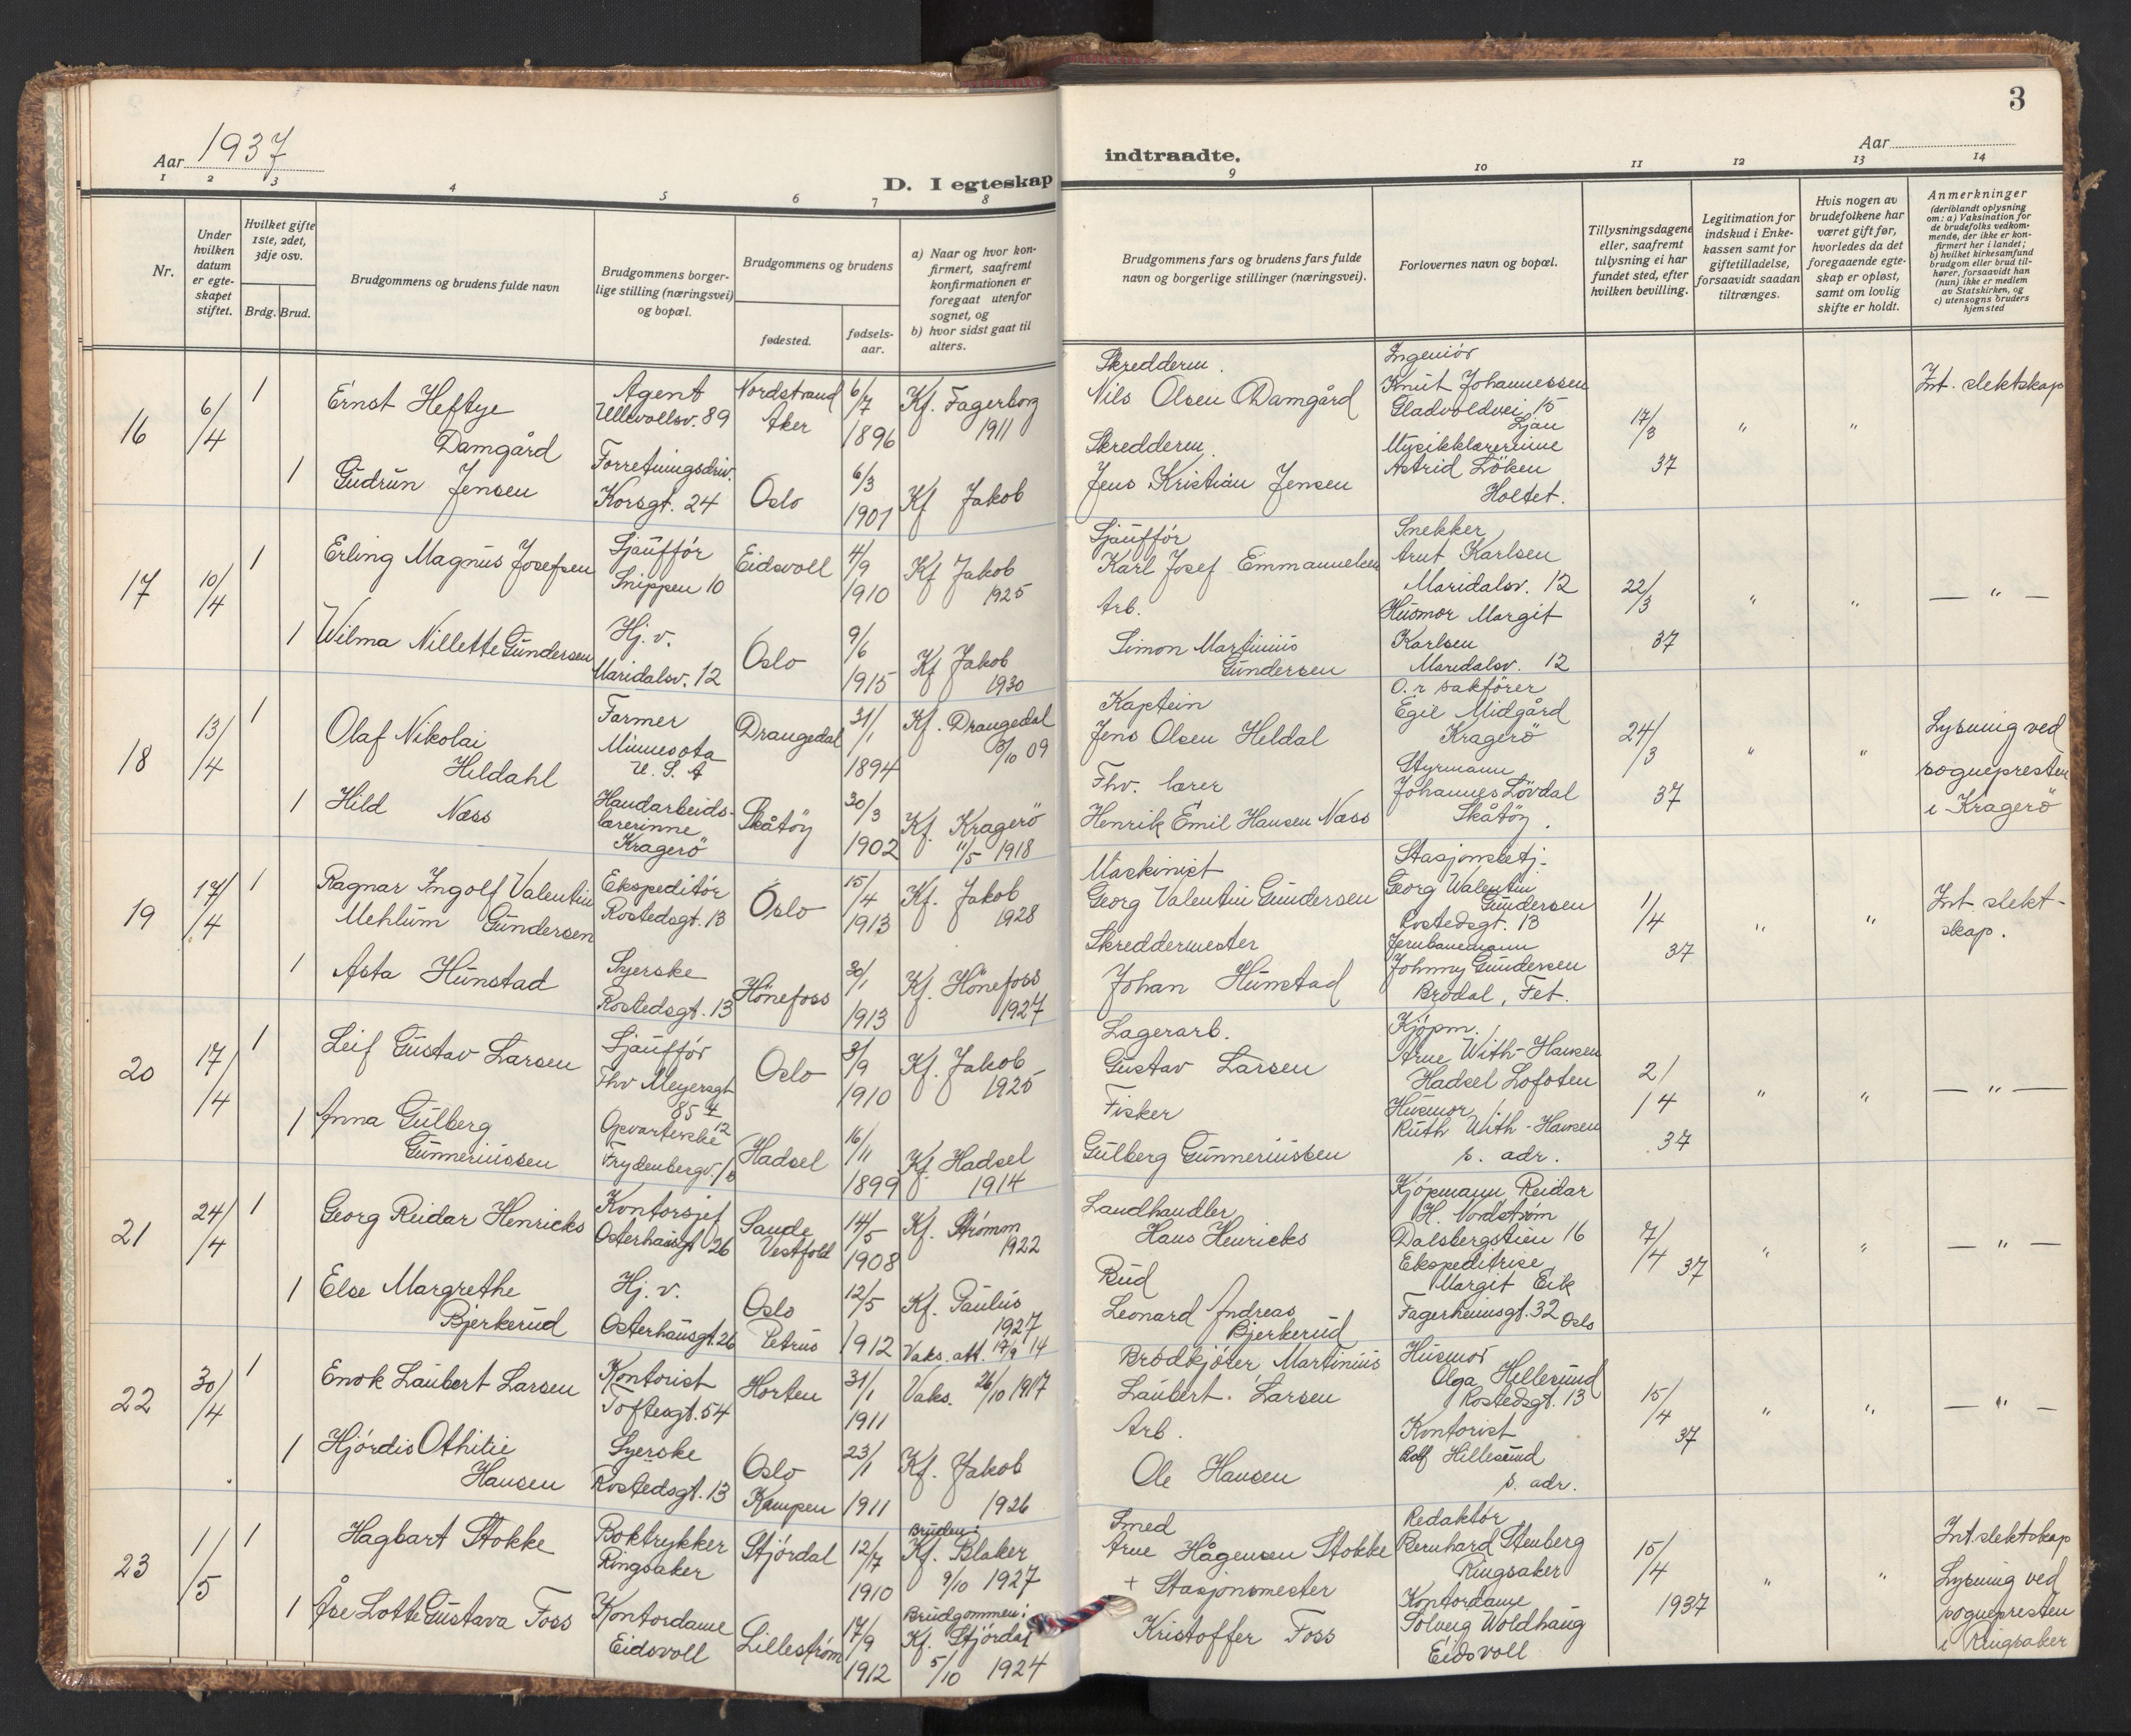 Aar 1937
D. I egteskap
1 2 3 4 5 6 7 8
Nr.
Under hvilken datum er egte-skapet stiftet.
Hvilket gifte 1ste, 2det, 3dje osv.
Brdg. Brud.
Brudgommens og brudens fulde navn
Brudgommens borger-lige stilling (næringsvei) og bopæl.
Brudgommens og brudens
fødested.
fødsels-aar.
a) Naar og hvor kon-firmert, saafremt konfirmationen er foregaat utenfor sognet, og
b) hvor sidst gaat til alters.
3
indtraadte.
Aar
9 10 11 12 13 14
Brudgommens fars og brudens fars fulde navn og borgerlige stillinger (næringsvei).
Forlovernes navn og bopæl.
Tillysningsdagene eller, saafremt tillysning ei har fundet sted, efter hvilken bevilling.
Legitimation for indskud i Enke-kassen samt for giftetilladelse, forsaavidt saadan tiltrænges.
Hvis nogen av brudefolkene har været gift før, hvorledes da det foregaaende egte-skap er opløst, samt om lovlig skifte er holdt.
Anmerkninger
(deriblandt oplysning om: a) Vaksination for de brudefolks vedkom-mende, der ikke er kon-firmert her i landet; b) hvilket kirkesamfund brudgom eller brud til-hører, forsaavidt han (hun) ikke er medlem av Statskirken, og c) utensogns bruders hjemsted
16 6/4 1
Ernst Heftye Damgård
Agent Ullevollsv. 89
Nordstrand Aker
6/7 1896
Kf. Fagerborg 1911
Skredderm. Nils Olsen Damgård
Ingeniör Knut Johannessen
Gladvoldvei 15 Ljan
17/3 37
" "
Int. slektskap
1 Gudrun Jensen
Forretningsdriv. Korsgt. 24
Oslo
6/3 1901
Kf Jakob
Skredderm. Jens Kristian Jensen
Musikklærerinne Astrid Löken
Holtet.
17 10/4 1
Erling Magnus Josefsen
Sjåufför Snippen 10
Eidsvoll
4/9 1910
Kf Jakob 1925
Sjåufför Karl Josef Emmanuelsen
Snekker Arnt Karlsen
Maridalsv. 12
22/3 37
" "
— " —
1 Wilma Nillette Gundersen
Hj. v. Maridalsv. 12
Oslo
9/6 1915
Kf Jakob 1930
Arb. Simon Martinius Gundersen
Husmor Margit Karlsen
Maridalsv. 12
18 13/4 1
Olaf Nikolai Hildahl
Farmer Minnesota U. S. A
Drangedal
31/1 1894
Kf. Drangedal 3/10 09
Kaptein Jens Olsen Heldal
O.r sakförer Egil Midgård
Kragerö
24/3 37
" "
Lysning ved sognepresten i Kragerö
1 Hild Næss
Handarbeids-lærerinne Kragerö
Skåtöy
30/3 1902
Kf. Kragerö 11/5 1918
Fhv. lærer Henrik Emil Hansen Næss
Styrmann Johannes Lövdal
Skåtöy.
19 17/4 1
Ragnar Ingolf Valentin Mehlum Gundersen
Ekspeditör Rostedsgt. 13
Oslo
15/4 1913
Kf. Jakob 1928
Maskinist Georg Valentin Gundersen
Stasjonsbetj. Georg Walentin Gundersen
Rostedsgt. 13
1/4 37
" "
Int. slekt-skap.
1 Asta Hunstad
Syerske Rostedsgt. 13
Hönefoss
30/1 1913
Kf. Hönefoss 1927
Skreddermester Johan Hunstad
Jernbanemann Johnny Gundersen
Brödal, Fet.
20 17/4 1
Leif Gustav Larsen
Sjåufför Thv Meyersgt 85 4
Oslo
3/9 1910
Kf. Jakob 1925
Lagerarb. Gustav Larsen
Kjöpm. Arne With-Hansen
Hadsel Lofoten
2/4 37
" "
— " —
1 Anna Gulberg Gunneriussen
Opvarterske Frydenbergv. 12
Hadsel
16/11 1899
Kf Hadsel 1914
Fisker Gulberg Gunneriussen
Husmor Ruth With-Hansen
s. adr.
21 24/4 1
Georg Reidar Henricks
Kontorsjef Osterhausgt 26
Sande Vestfold
14/5 1908
Kf. Strömm 1922
Landhandler Hans Henricks
Kjöpmann Reidar H. Nordström
Dalsbergstien 16
7/4 37
" "
— " —
1 Else Margrethe Bjerkerud
Hj. v. Osterhausgt. 26
Oslo Petrus
12/5 1912
Kf. Paulus 1927
Vaks. att. 17/9 14
Bud Leonard Andreas Bjerkerud
Ekspeditrise Margit Eik
Fagerheimsgt. 32 Oslo
22 30/4 1
Enok Laubert Larsen
Kontorist Toftesgt. 54
Horten
31/1 1911
Vaks. 26/10 1917
Brödkjörer Martinius Laubert Larsen
Husmor Olga Hillesund
Rostedsgt. 13
15/4 37
" "
— " —
1 Hjördis Othilie Hansen
Syerske Rostedsgt. 13
Oslo Kampen
23/1 1911
Kf. Jakob 1926
Arb. Ole Hansen
Kontorist Rolf Hillesund
s. adr.
23 1/5 1
Hagbart Stokke
Boktrykker Ringsaker
Stjördal
12/7 1910
Bruden: Kf. Blaker 9/10 1927
Smed Arne Hågensen Stokke
Redaktör Bernhard Stenberg
Ringsaker
15/4 1937
" "
Int. slektskap
Lysning ved sognepresten i Ringsaker
1 Åse Lotte Gustava Foss
Kontordame Eidsvoll
Lilleström
17/9 1912
Brudgommen: Kf. Stjördal 5/10 1924
+ Stasjonsmester Kristoffer Foss
Kontordame Solveig Woldhaug
Eidsvoll